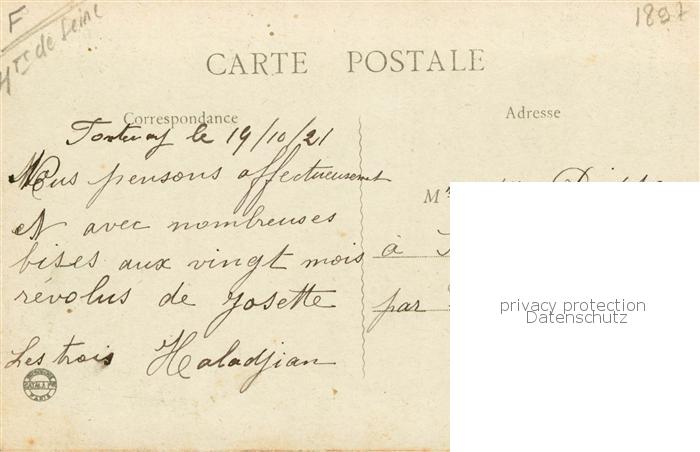 F
Hts de Seine
1897
CARTE POSTALE
Correspondance
Adresse
Fontenay le 19/10/21
Nous pensons affectueusement
et avec nombreuses
bises aux vingt mois
révolus de Josette
Les trois Haladjian
M
à
par
privacy protection
Datenschutz
PARIS